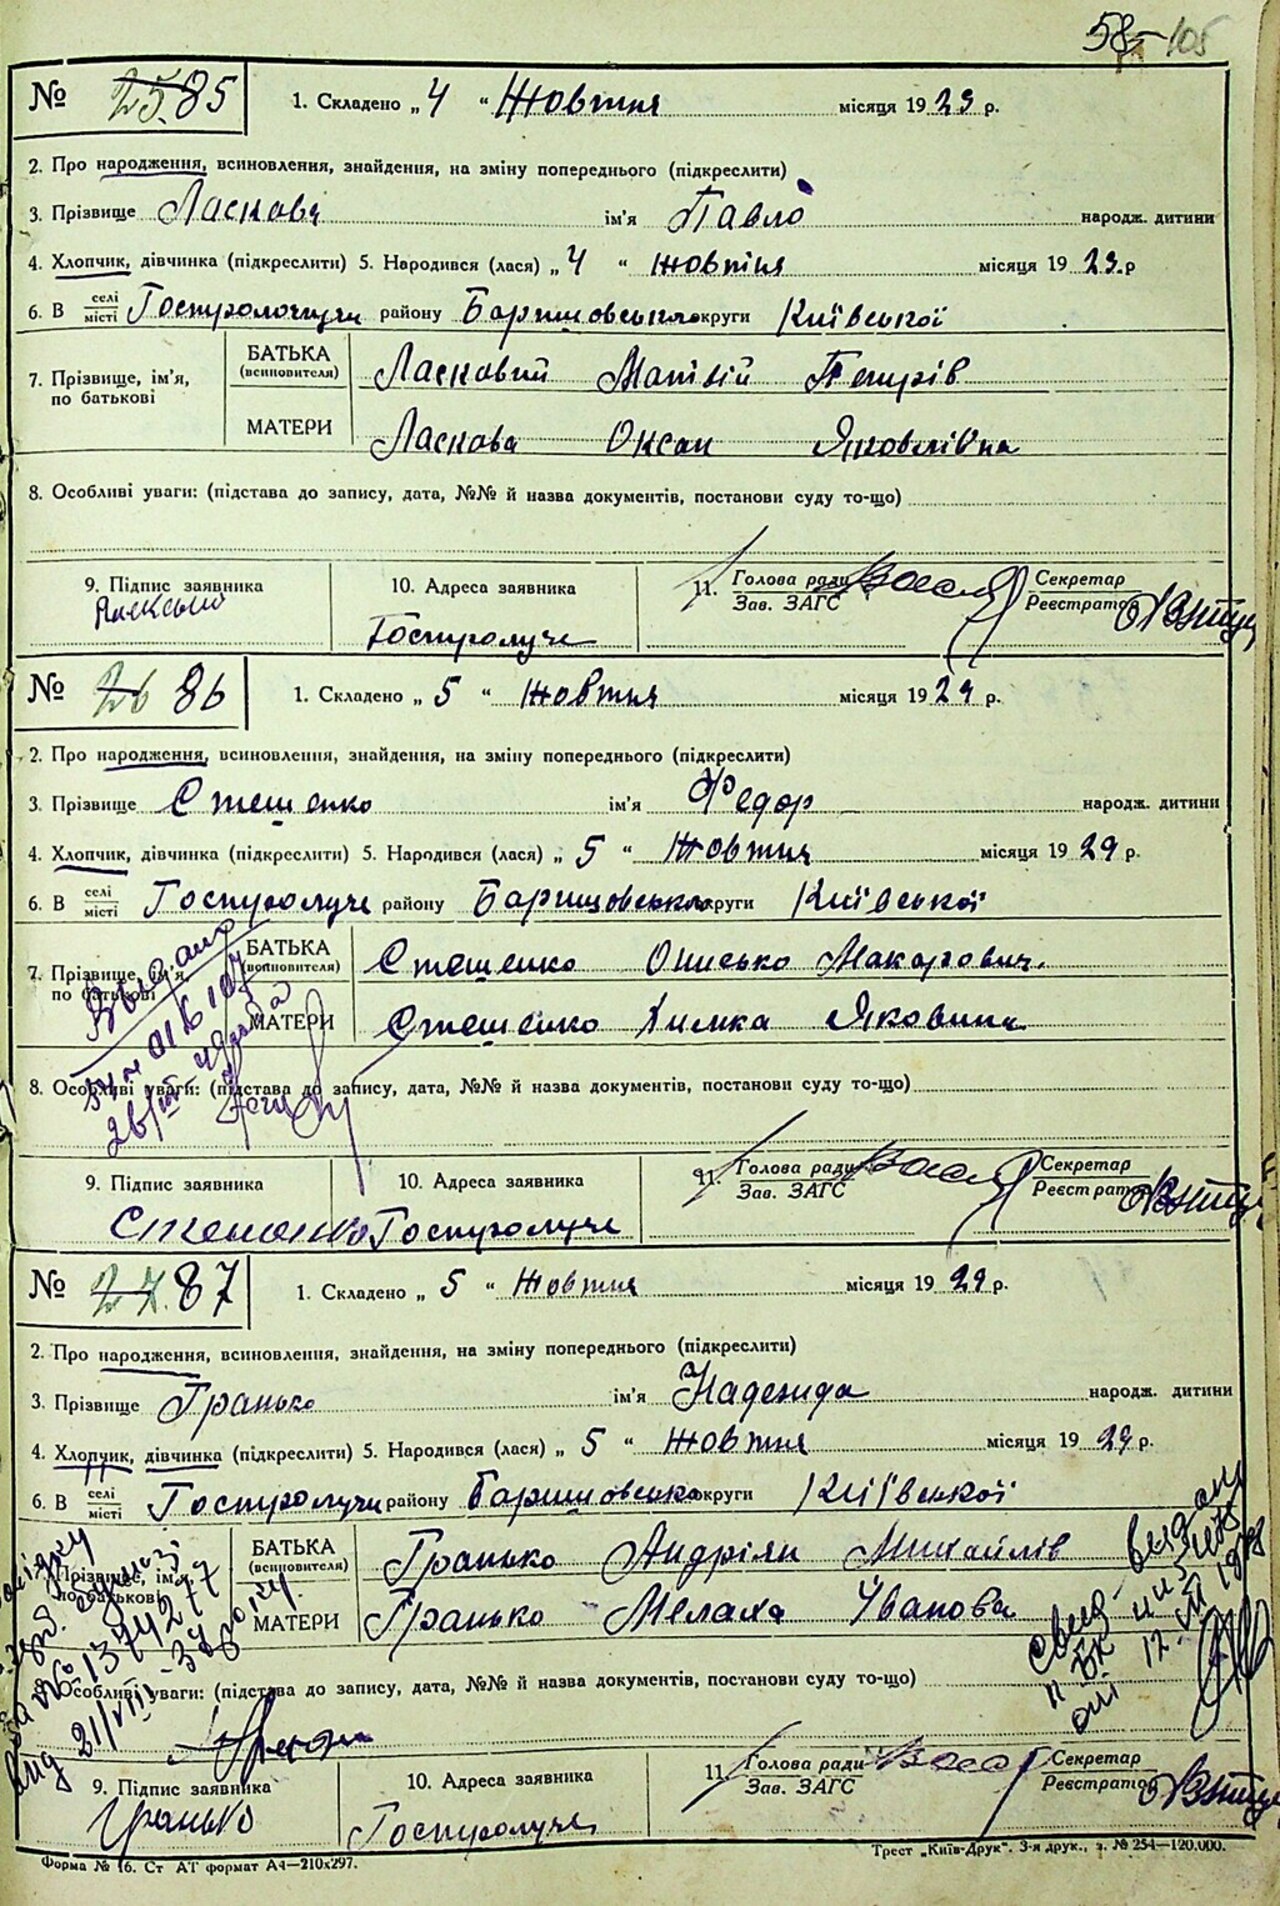 58 105
№ 25. 85 1. Складено „ 4 “ Жовтня місяця 19 29 р.
2. Про народження, всиновлення, знайдення, на зміну попереднього (підкреслити)
3. Прізвище Ласкови ім'я Павло народж. дитини
4. Хлопчик, дівчинка (підкреслити) 5. Народився (лася) „ 4 “ жовтня місяця 19 29. р
6. В селі місті Гостролочучи району Баришовського округи Київської
7. Прізвище, ім'я, по батькові БАТЬКА (всиновителя) Ласковий Матвій Петрів
МАТЕРИ Ласкова Оксан Яковлівна
8. Особливі уваги: (підстава до запису, дата, №№ й назва документів, постанови суду то-що)
9. Підпис заявника 10. Адреса заявника 11. Голова ради Зав. ЗАГС Секретар Реєстратор
Гостролуче
№ 26 86 1. Складено „ 5 “ Жовтня місяця 19 29 р.
2. Про народження, всиновлення, знайдення, на зміну попереднього (підкреслити)
3. Прізвище Стешенко ім'я Федор народж. дитини
4. Хлопчик, дівчинка (підкреслити) 5. Народився (лася) „ 5 “ Жовтня місяця 19 29 р.
6. В селі місті Гостролуче району Баришовського округи Київської
7. Прізвище, ім'я по батькові БАТЬКА (всиновителя) Стешенко Онисько Макарович.
МАТЕРИ Стешенко Химка Яковина
8. Особливі уваги: (підстава до запису, дата, №№ й назва документів, постанови суду то-що)
9. Підпис заявника 10. Адреса заявника 11. Голова ради Зав. ЗАГС Секретар Реєстратор
Стешенко Гостролуче
№ 27. 87 1. Складено „ 5 “ Жовтня місяця 19 29 р.
2. Про народження, всиновлення, знайдення, на зміну попереднього (підкреслити)
3. Прізвище Гранько ім'я Надежда народж. дитини
4. Хлопчик, дівчинка (підкреслити) 5. Народився (лася) „ 5 “ Жовтня місяця 19 29 р.
6. В селі місті Гостролучи району Баришовського округи Київської
Прізвище, ім'я по батькові БАТЬКА (всиновителя) Гранько Андріян Михайлів
МАТЕРИ Гранько Мелаха Іванова
Особливі уваги: (підстава до запису, дата, №№ й назва документів, постанови суду то-що)
9. Підпис заявника 10. Адреса заявника 11. Голова ради Зав. ЗАГС Секретар Реєстратор
Гранько Гостролуче
Форма № 16. Ст АТ формат А4—210х297. Трест „Київ-Друк". 3-я друк., з. № 254—120.000.